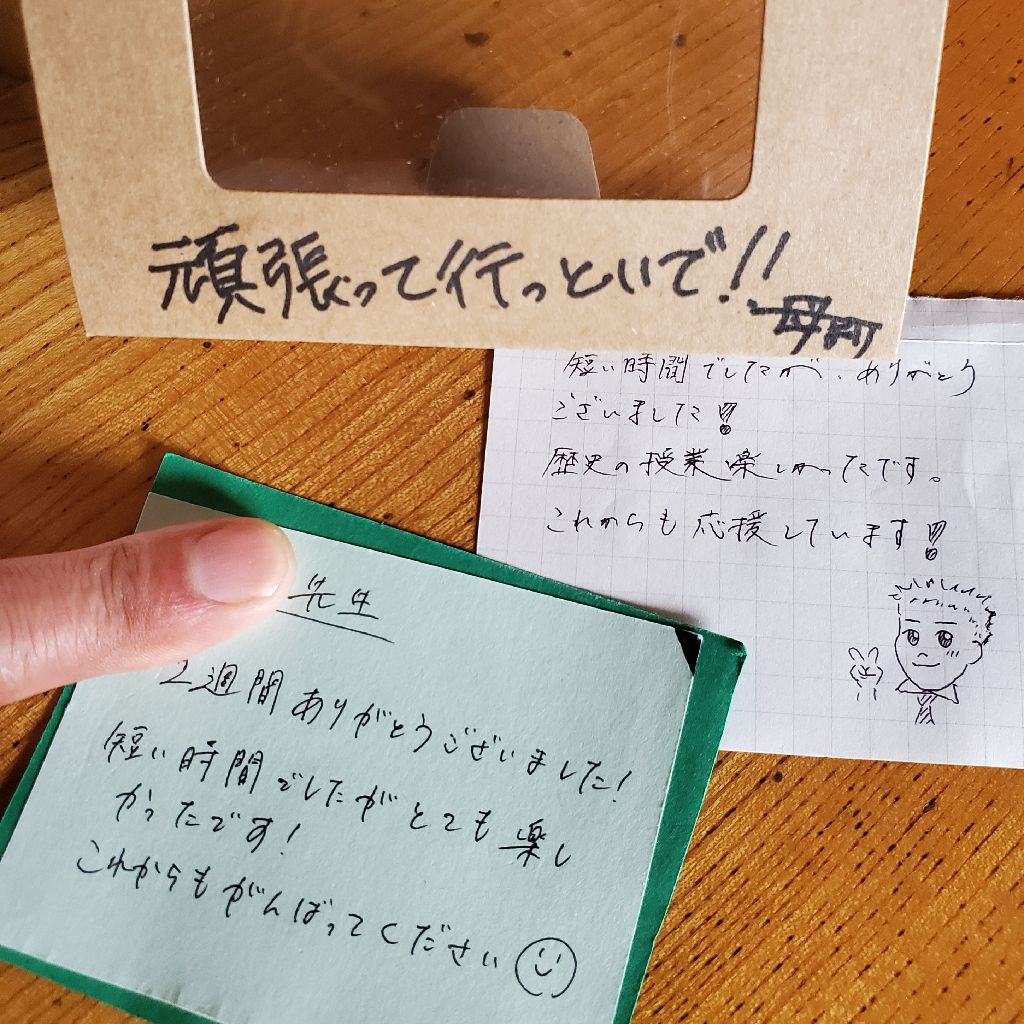 頑張って行っといで!!
母より
短い時間でしたが、ありがとう
ございました!
歴史の授業楽しかったです。
これからも応援しています!
先生
2週間ありがとうございました!
短い時間でしたがとても楽し
かったです!
これからもがんばってください